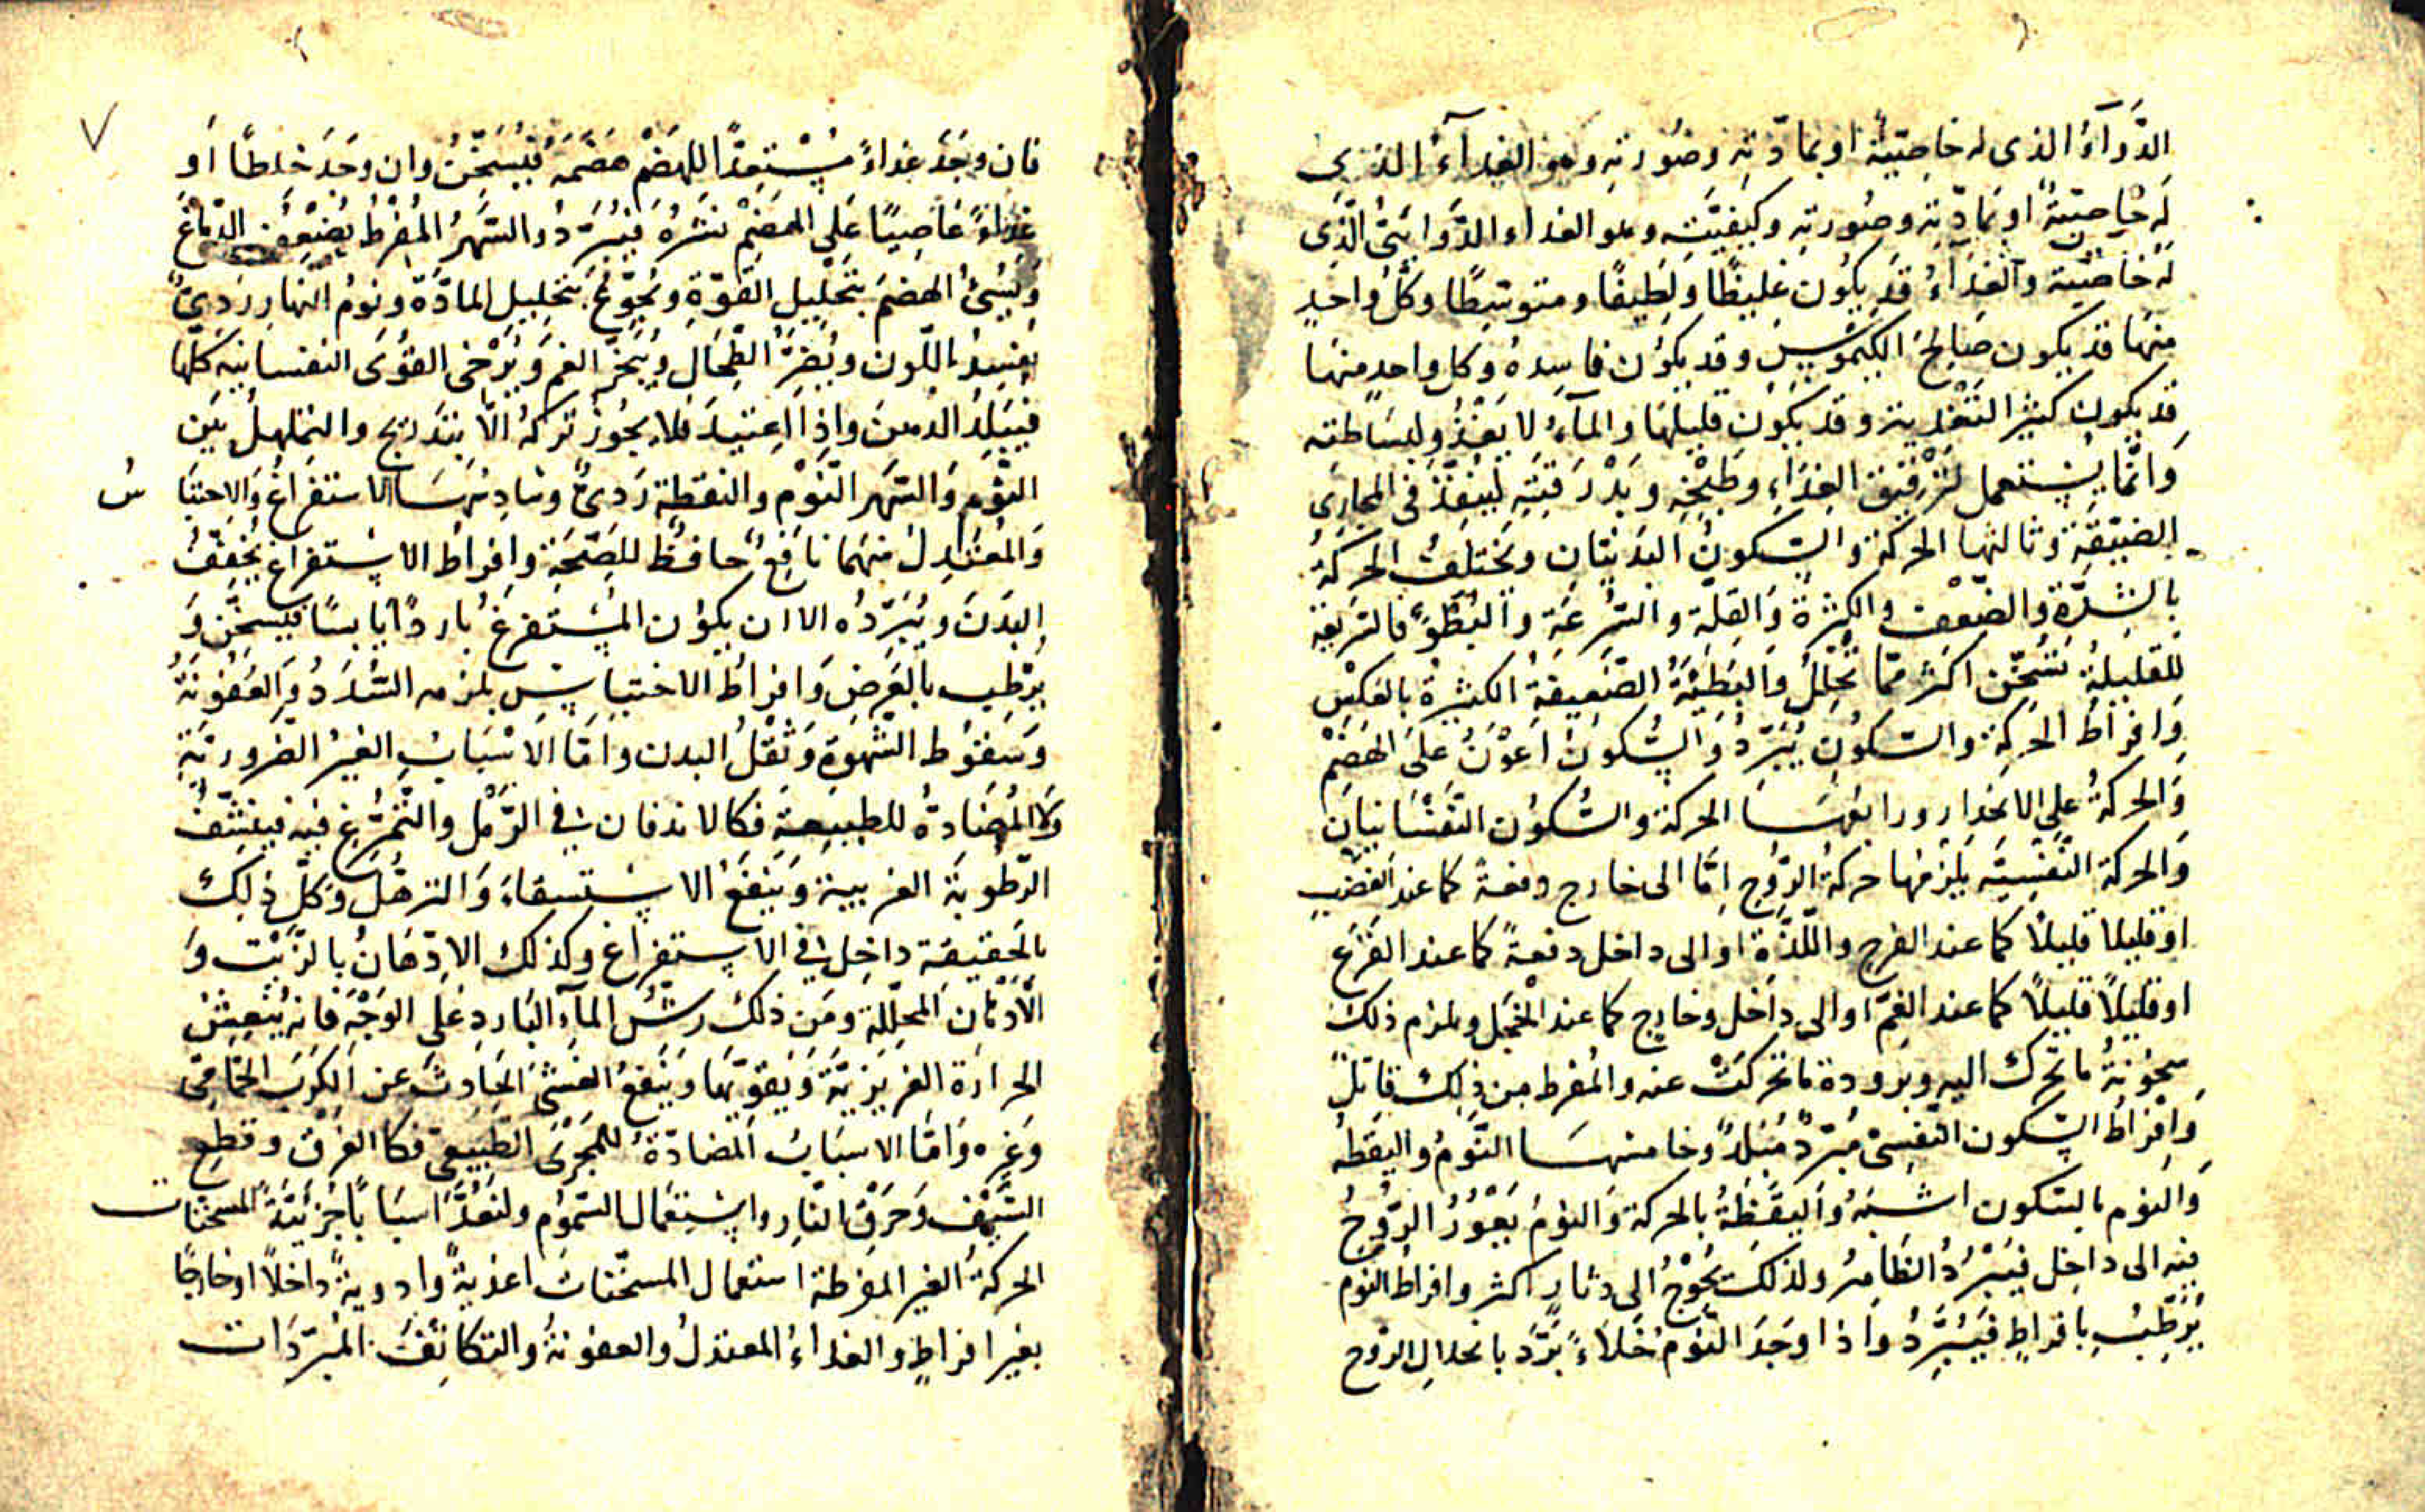 الدَّوَآءُ الذى له خاصّيّة او بمادّته وصُورته وهو الغِدآءُ الذى
لَه خاصّيّةٌ او بمادّته وصُورته وكيفيّته وهو الغداء الدَّوَايىُّ الّذِى
لَه خاصّيّة والغِدَآءُ قد يكُون غليظًا ولَطيفًا ومتوسّطًا وكلُّ واحدٍ
منهَا قد يكون صَالحَ الكيموُسِ وقد يكوُن فاسِدهُ وكل واحدٍ منهَا
قد يكون كثيرَ التّغْدية وقد يكوُن قليلَها والمآءُ لا يَغْذُو لبسَاطته
وَانّمَا يُستعمل لتَرْقيق الغِدَاءِ وطَبْخِهِ وبَدْرَقَتِهِ ليَنْفُذَ فى المجَارِى
الضيّقةِ وثالثها الحركة والسّكونُ البدَنيّان وتختلفُ الحركةُ
بالشِّدّةِ والضّعْف والكثرة والقِلّة والسُّرعَة والبُطؤِ فالسّريعة
للقليلةُ تسَخّن اكثر ممّا تُحَلِّلُ والبَطيئَةُ الضّعِيفةُ الكثيرةُ بالعكس
وَافراطُ الحركة والسّكوُن يُبَرّدُ وَالسُّكونُ اَعْوَنُ عَلَى الهَضمِ
وَالحركةُ على الانحدار ورابعهَا الحركة والسُّكوُن النّفسَانيّان
وَالحركة النّفسِيّة يَلزمُها حركةُ الرُّوح امّا الى خارج دفعةً كما عند الغضب
او قليلا قليلاً كما عند الفرح واللّذّة او الى داخل دفعةً كما عند الفَزَع
او قليلاً قليلاً كما عند الغمّ او الى داخل وخارج كما عند الخَجَل ويلزم ذلك
سخُونةُ ما تحرك اليه وبرودة ما تحركتْ عنه والمُفرط من ذلِك قاتلٌ
وَافراطُ السّكون النّفسىّ مُبَرّدٌ مُبَلّدٌ وخامسُهَا النّومُ واليقظه
وَالنوم بالسّكون اشبَهُ وَاليقَظَةُ بالحركة وَالنومُ يَغُورُ الرّوحُ
فيه الى داخل فيَبْرُدُ الظّاهِرُ ولذلك يُحوْجُ الى دثار اكثر وافراطُ النّوم
يُرَطّبُ بافراطٍ فَيُبَرّدُ واذا وَجَدَ النّومُ خَلآءً بَرّدَ بانحلال الرّوح
فان وجَدَ غِداءً مُسْتعدًّا للهَضْم هضَمَهُ فيُسَخّنُ وان وجَدَ خلطًا اَو
غِدآءً عَاصيًا عَلَى الهَضْم نشَرَهُ فيُبَرّدُ والسّهَرُ المُفْرِطُ يُضعِفُ الدّماغَ
وَيُسئُ الهضمَ بتَحْليل القُوّةِ ويُجَوّعُ بتَحْليل المادّة ونومُ النهار رَدىٌّ
يُفسِدُ اللّون ويُضِرُّ الطّحَال ويُبَخّرُ الفمَ ويُرْخى القُوَى النفسانيه كلّها
فيُبَلِّدُ الذهن واذا اعتيدَ فلا يجوُز تركُهُ الّا بتَدْريج والتململ بَين
النّوم وَالسّهَر النّوْم واليقظة رَدىٌّ وسَادسهَا الاستفراغ والاحتبا س
وَالمُعْتدِلُ منهمَا نافعٌ حافظٌ للصّحَة وافراطُ الاستفراغ يُجفّفُ
البدَنَ ويُبَرّدُه الا ان يكوُن المُستفرَغُ باردًا يابسًا فيُسخّن وَ
يرطّب بالعَرض وَافراطُ الاحتبَاسِ يلزمه السُّدَدُ وَالعفُونةُ
وَسقوُط الشّهوَة وَثقْلُ البدن وامّا الاسْبَابُ الغيرُ الضّروريّة
وَلا المُضَادّةُ للطّبيعة فكالاندفان فى الرّمْل والتّمَرّغ فيه فينشّفُ
الرّطُوبَة الغريبة ويَنفعُ الاستسقاء والترهّل وكلّ ذلِك
بالحقيقة داخل فى الاستفراغ وكذلك الادّهَانُ بالزّيت وَ
الادْهان المحلّلة ومن ذلك رشّ المآء البارد على الوَجْه فانه يُنعشُ
الحرارة الغريزيّة ويُقوّيهَا ويَنفعُ الغشىَ الحادثَ عن الكرَب الحمّامىّ
وغيره وَامّا الاسبابُ المضادّةُ للمجْرَى الطّبيعىّ فكالغرق وقطع
السّيْف وَحَرْق النّار واستعمال السّموُم ولنَعُدَّ اسبَابًا جُزئيّةً المسخنات
الحركةُ الغير المفرطة استعمال المسخّنات اغذيةً وادويةً داخلاً اوخارجًا
بغير افراطٍ والغداءُ المعتدلُ والعفونةُ والتكاثفُ المبرّدَات